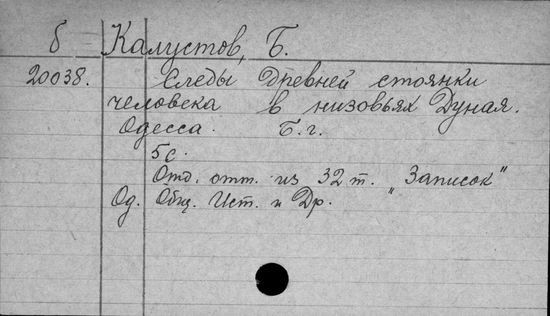 б Калустов, Б.
20038. Следы древней стоянки
человека в низовьях Дуная.
Одесса. Б.г.
5 с.
Отд. отт. из 32 т. "Записок"
Од. Общ. Ист. и Др.